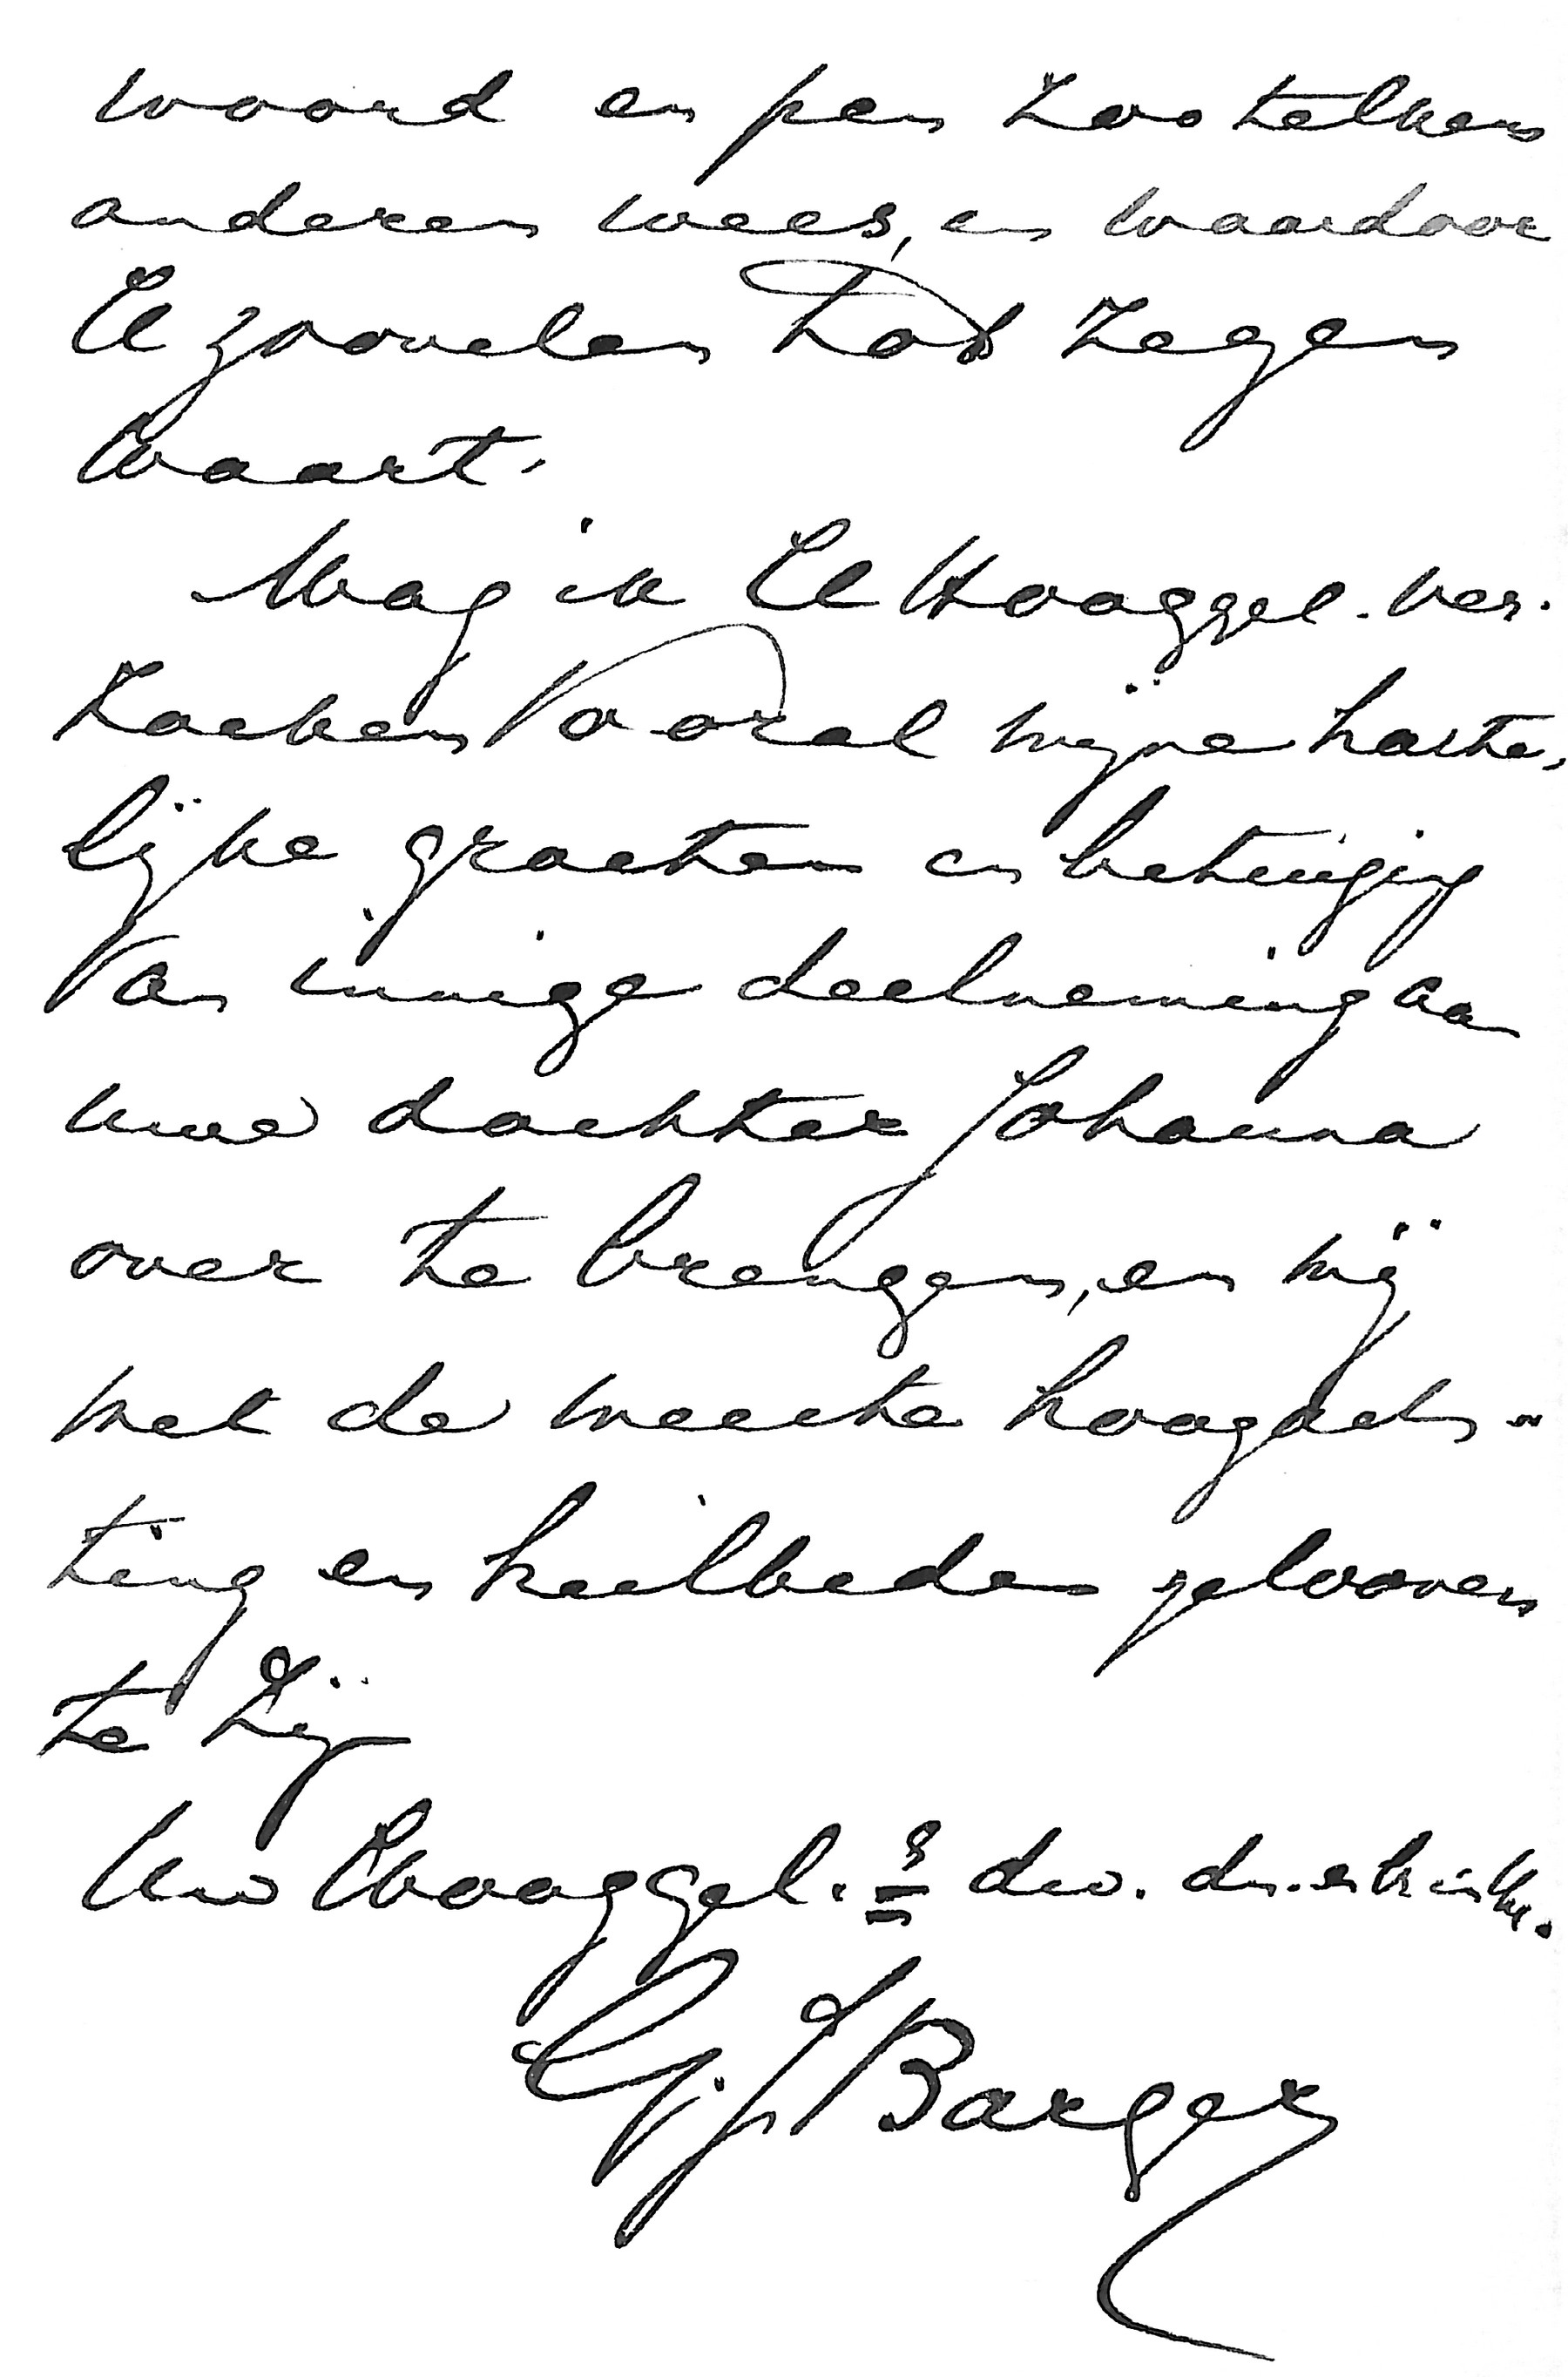 woord en pen zoo telkens
anderen wees, en waardoor
U zoovelen tot zegen
waart.
Mag ik U Hooggel. ver-
zoeken vooral mijne harte-
lijke groeten en betuiging
van innige deelneming aan
uwe dochter Johanna
over te brengen, en mij
met de meeste hoogach-
ting en heilbeden gelooven
te zijn
Uw Hooggel. dw. dr. en br. in
G. J. Barger